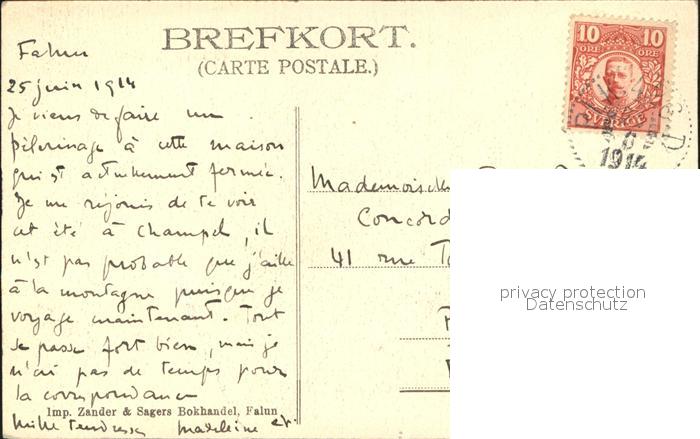 BREFKORT.
(CARTE POSTALE.)
Falun
25 juin 1914
Je viens de faire un
pèlerinage à cette maison
qui est actuellement fermée.
Je me réjouis de te voir
cet été à Champel, il
n'est pas probable que j'aille
à la montagne puisque je
voyage maintenant. Tout
se passe fort bien, mais je
n'ai pas de temps pour
la correspondance
Imp. Zander & Sagers Bokhandel, Falun
Mille tendresses Madeleine
10 10
ÖRE ÖRE
SVERIGE
1914
Mademoiselle
Concord
41 rue
privacy protection
Datenschutz